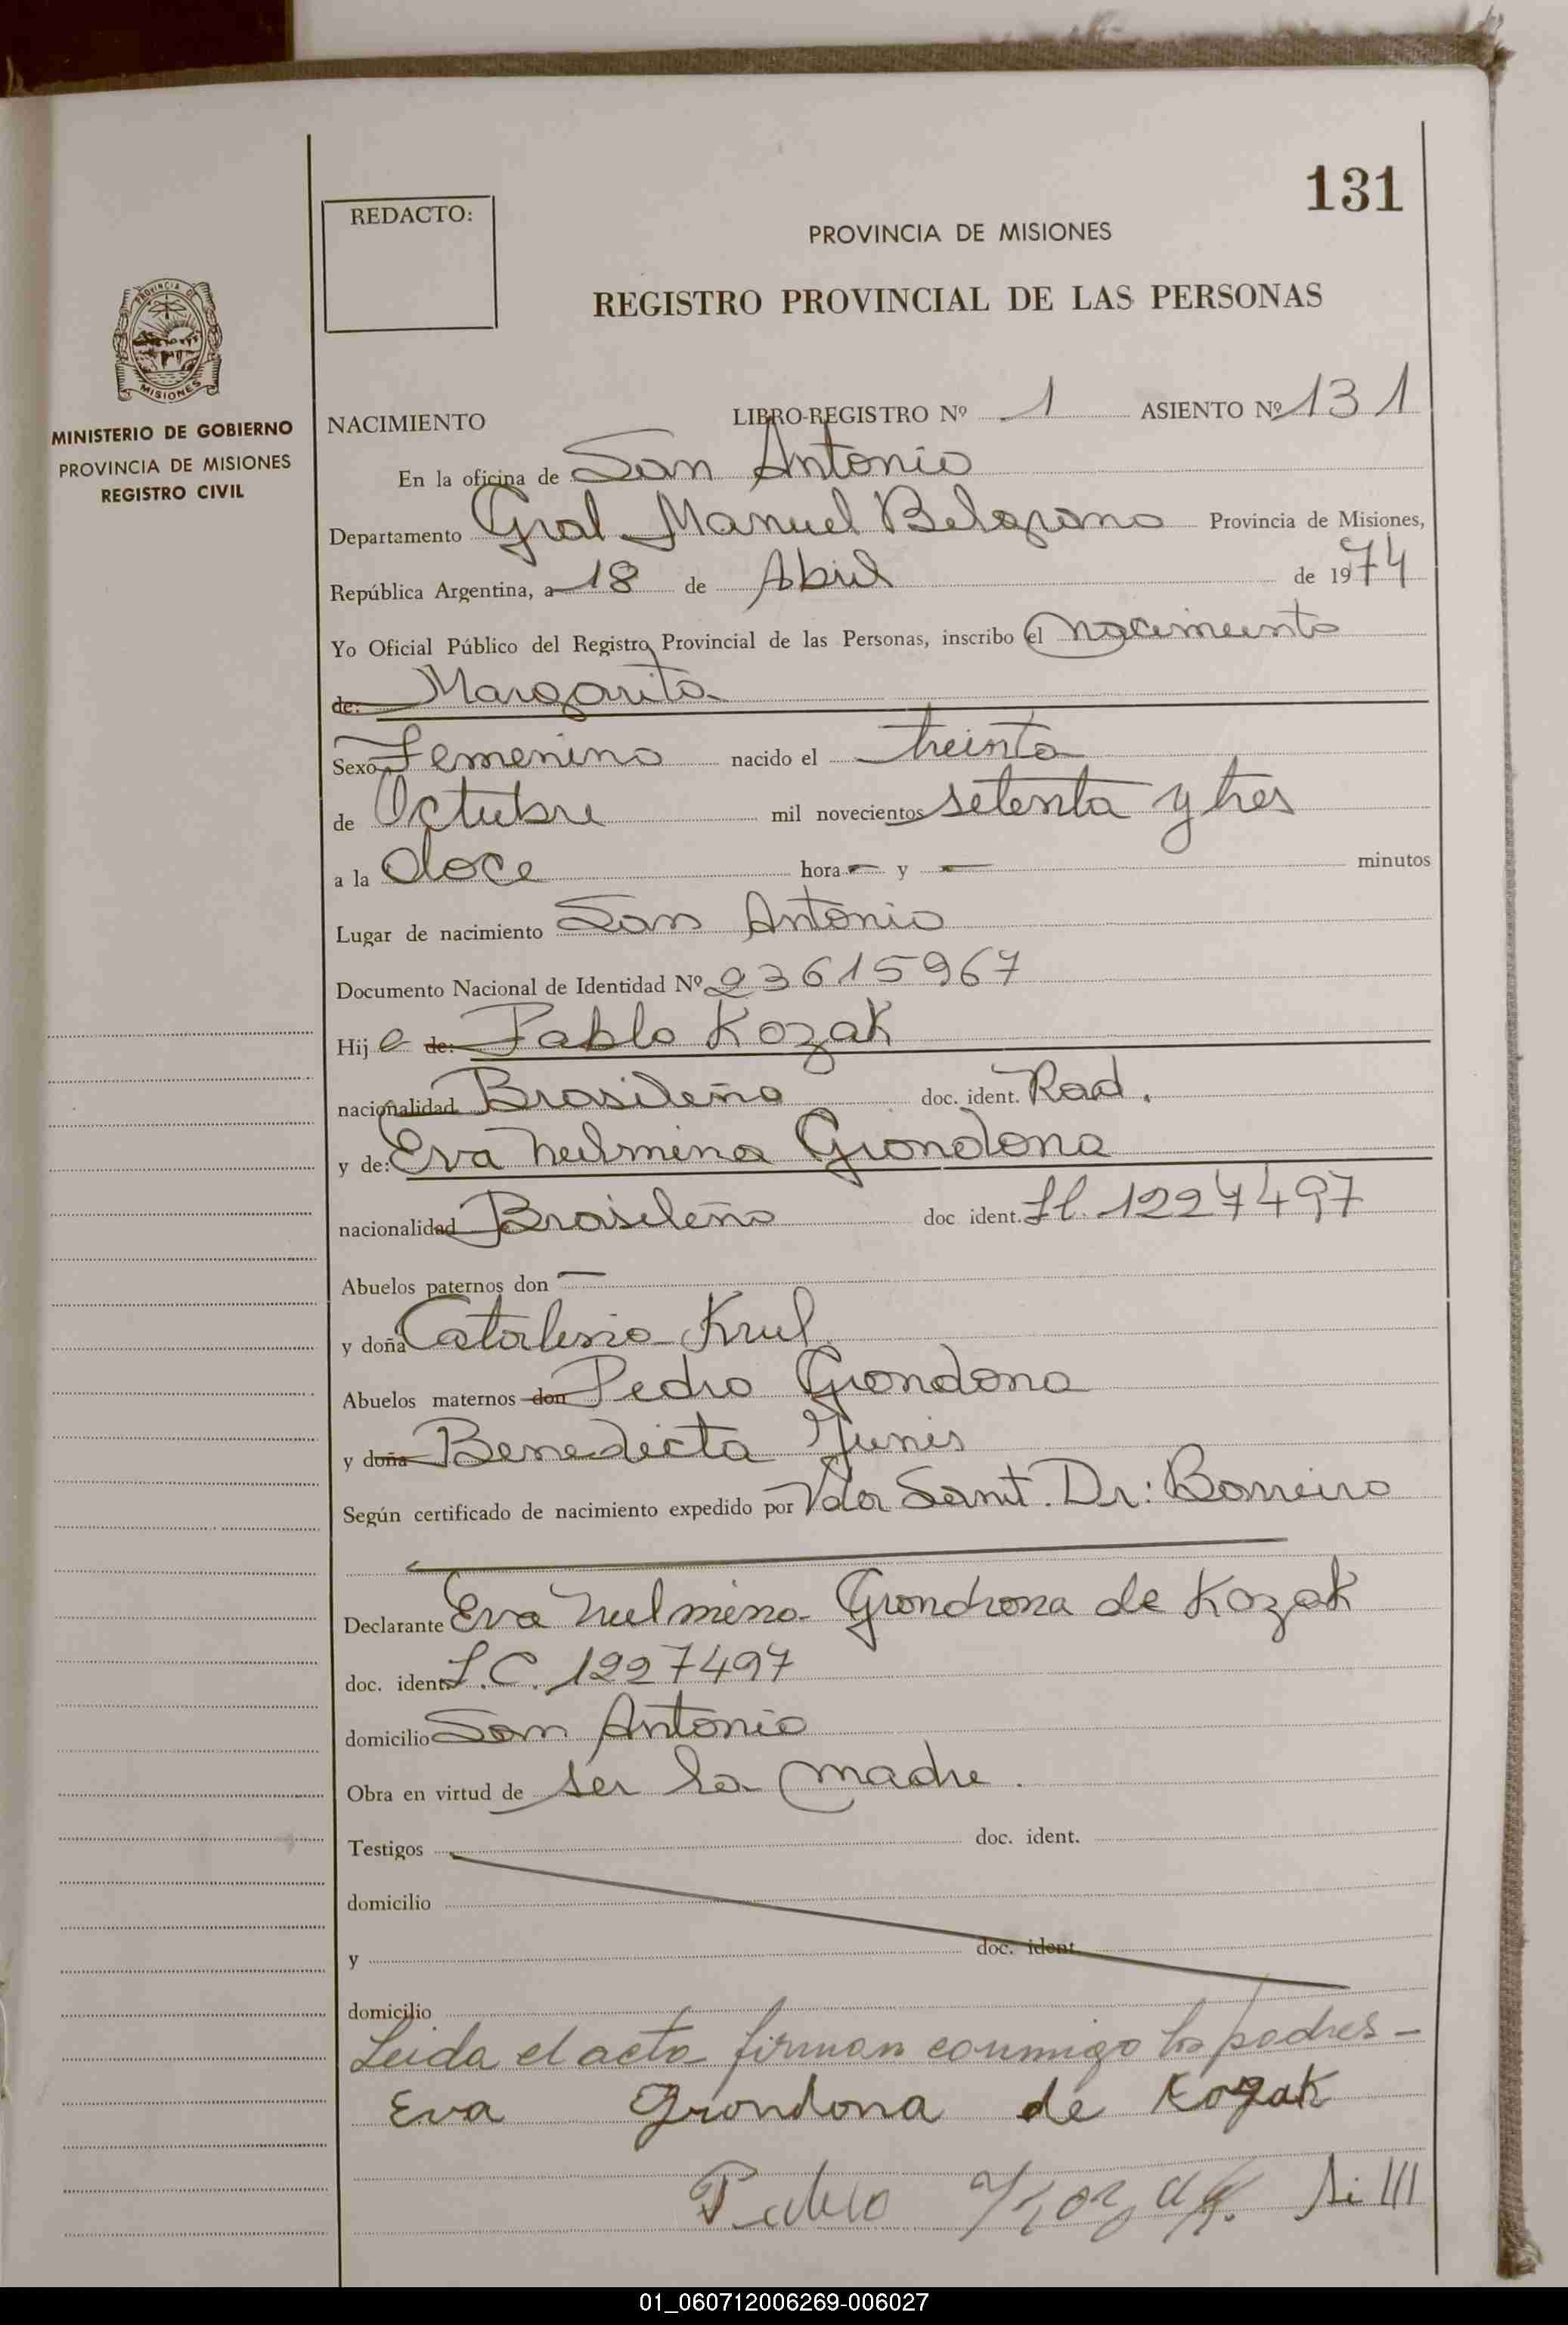 131
REDACTO:
PROVINCIA DE MISIONES
REGISTRO PROVINCIAL DE LAS PERSONAS
PROVINCIA DE
MISIONES
MINISTERIO DE GOBIERNO
PROVINCIA DE MISIONES
REGISTRO CIVIL
NACIMIENTO LIBRO-REGISTRO Nº 1 ASIENTO Nº 131
En la oficina de San Antonio
Departamento Gral Manuel Belgrano Provincia de Misiones,
República Argentina, a 18 de Abril de 1974
Yo Oficial Público del Registro Provincial de las Personas, inscribo el nacimiento
de: Margarita
Sexo Femenino nacido el treinta
de Octubre mil novecientos setenta y tres
a la doce hora — y — minutos
Lugar de nacimiento San Antonio
Documento Nacional de Identidad Nº 23615967
Hija de: Pablo Kozak
nacionalidad Brasileña doc. ident. Rad.
y de: Eva Grondona
nacionalidad Brasileña doc ident. 1227497
Abuelos paternos don —
y doña Catalina Krul
Abuelos maternos don Pedro Grondona
y doña Benedicta
Según certificado de nacimiento expedido por Sanit. Dr: Borreiro
Declarante Eva Grondona de Kozak
doc. ident. L.C. 1227497
domicilio San Antonio
Obra en virtud de ser la madre.
Testigos doc. ident.
domicilio
y doc. ident.
domicilio
Leida el acta firman conmigo los padres -
Eva Grondona de Kozak
Pablo Kozak
01_060712006269-006027